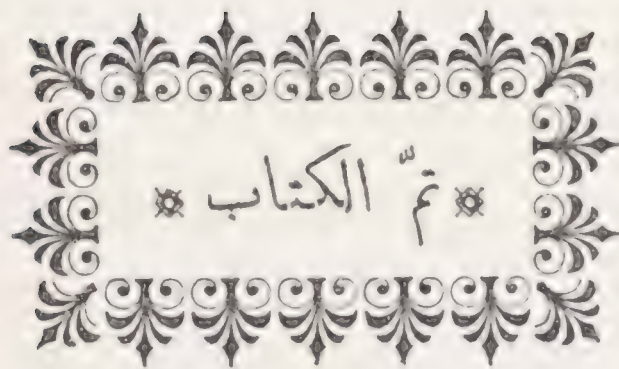 تمّ الكتاب